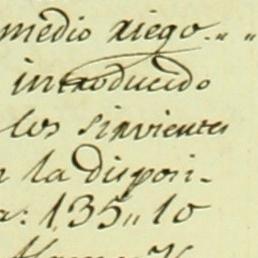 medio riego.„ „
introducido
los sirvientes
la disposi-
a: 135„10